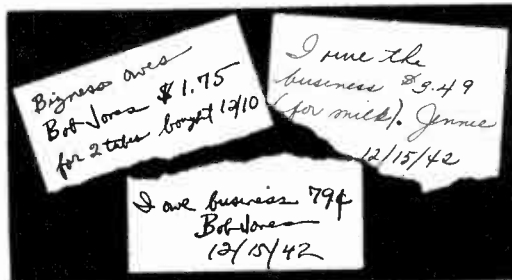 Bizness owes
Bob Jones $1.75
for 2 tubes bought 12/10
I owe the
business $3.49
(for milk). Jennie
12/15/42
I owe business 79¢
Bob Jones
12/15/42